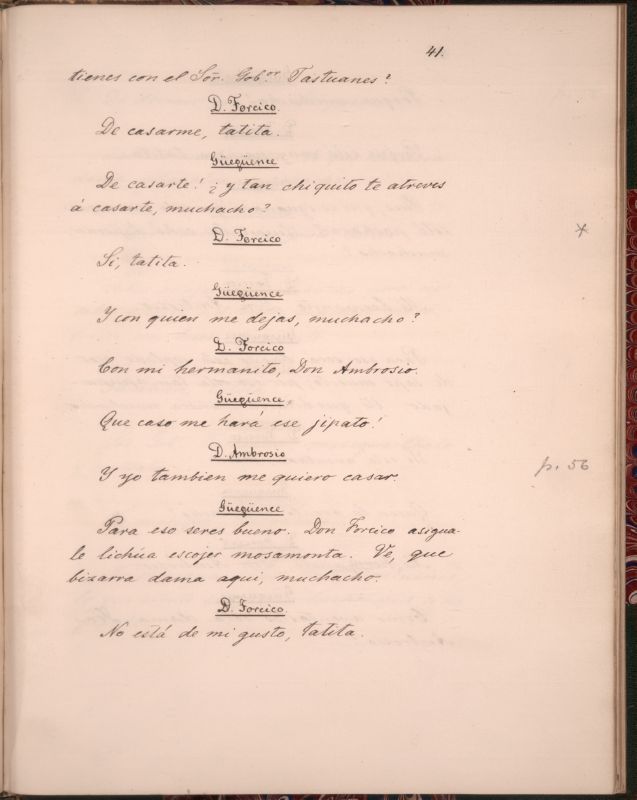 41.
tienes con el Señ. Gobor Tastuanes?
D. Forcico.
De casarme, tatita.
Güegüence
De casarte! ¿ y tan chiquito te atreves
á casarte, muchacho?
D. Forcico
Si, tatita.
Güegüence
Y con quien me dejas, muchacho?
D. Forcico
Con mi hermanito, Don Ambrosio.
Güegüence.
Que caso me hará ese jipato!
D. Ambrosio
Y yo tambien me quiero casar.
p. 56
Güegüence
Para eso seres bueno. Don Forcico asigua-
le lichúa escojer mosamonta. Ve, que
bizarra dama aqui, muchacho.
D. Forcico.
No está de mi gusto, tatita.